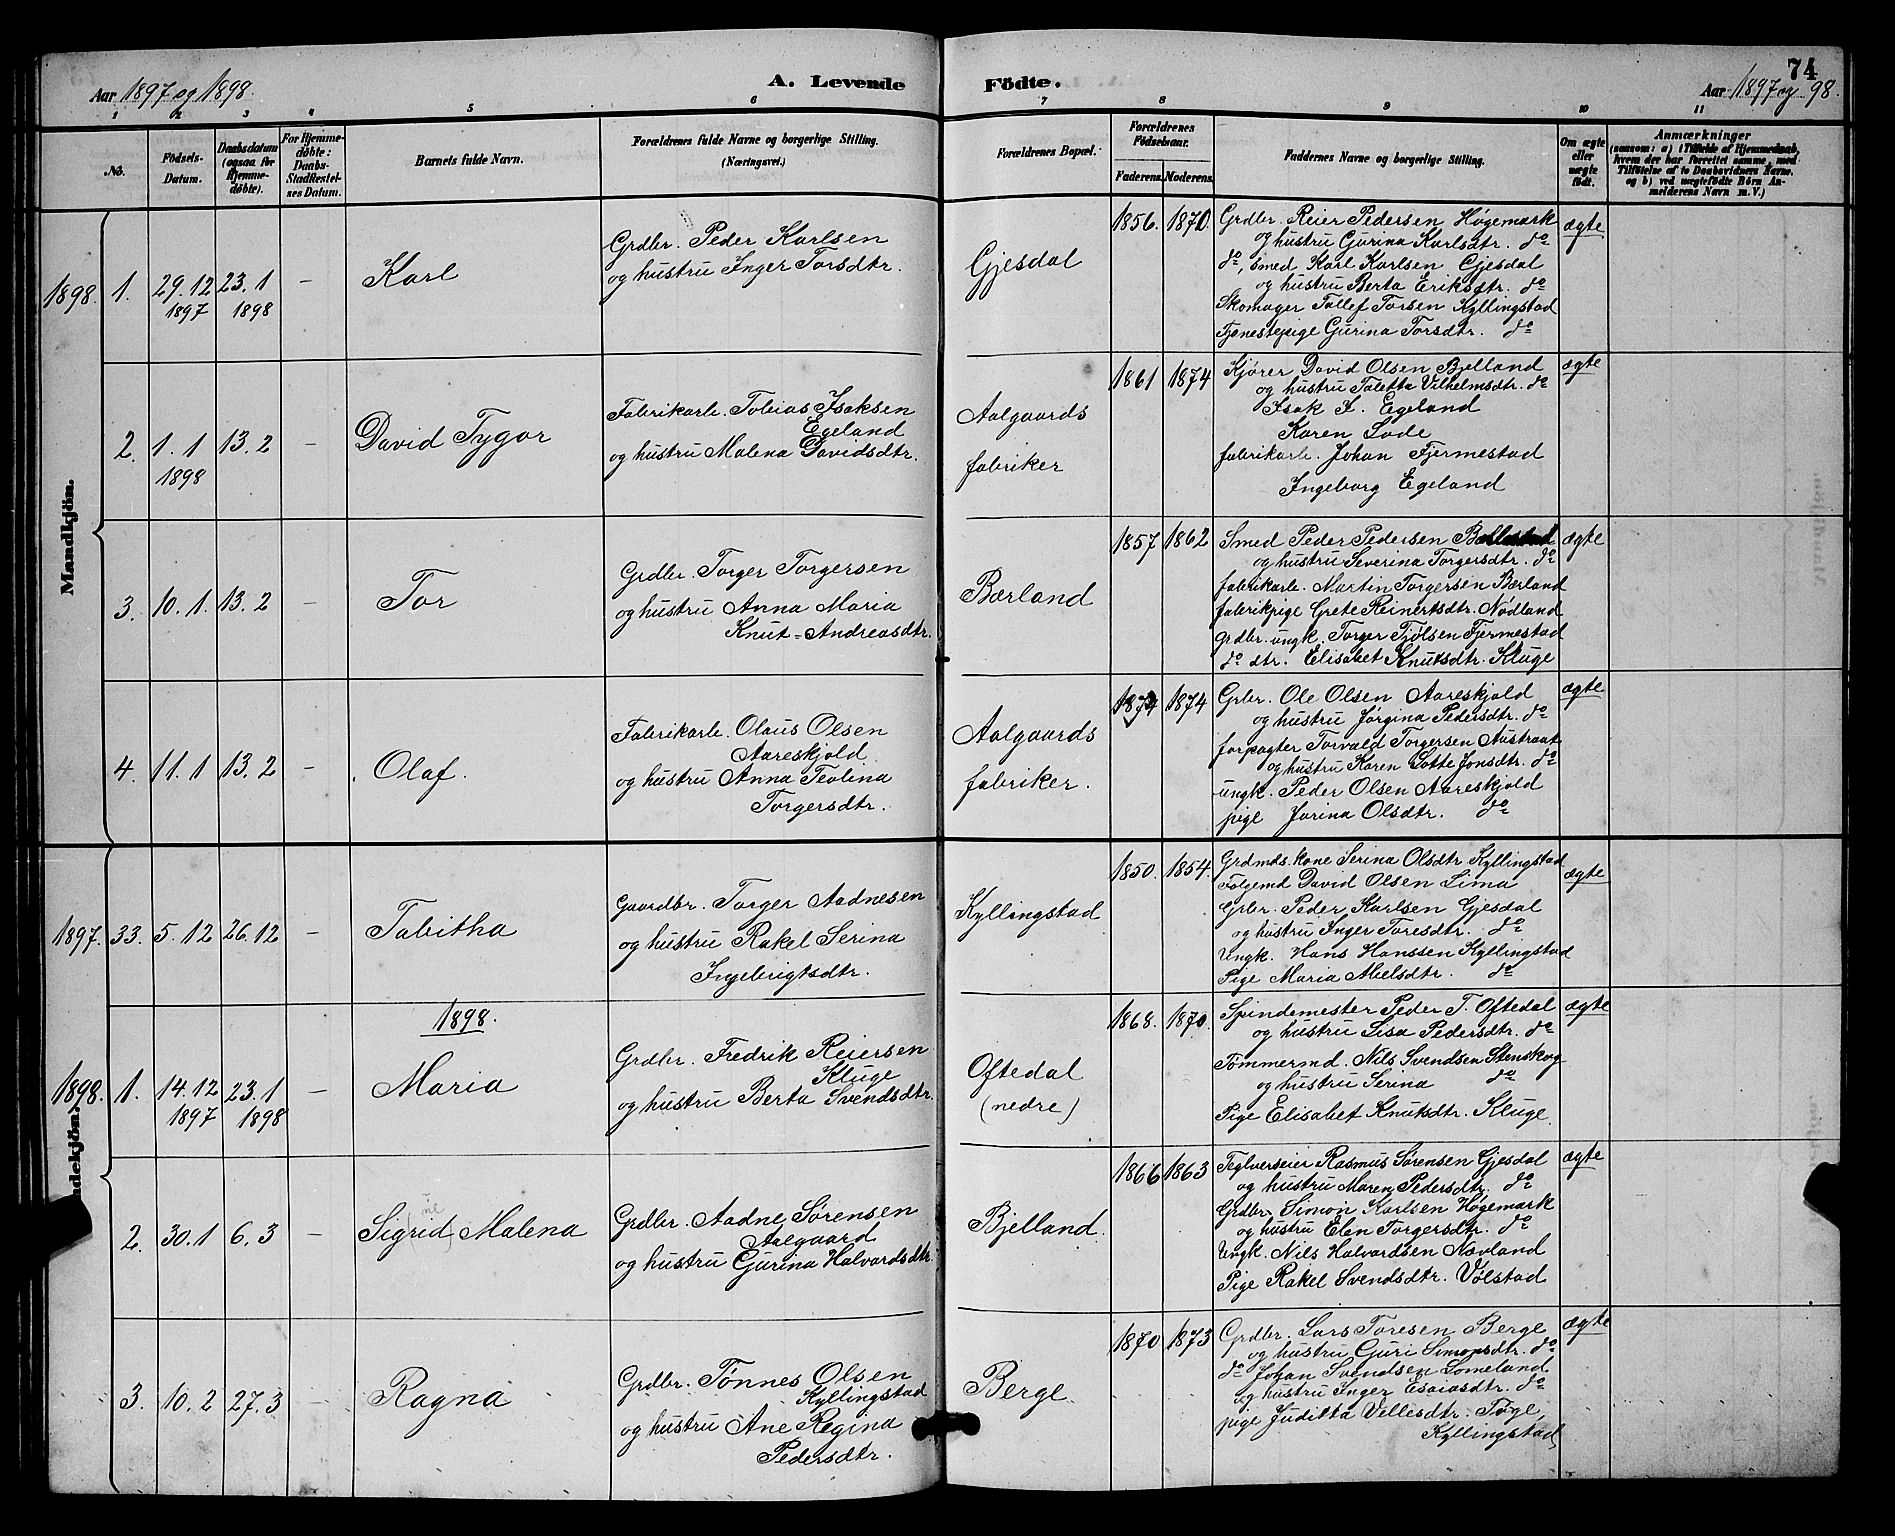 74
Aar 1897 og 1898.
A. Levende
Födte.
Aar 1897 og 98.
1 2 3 4 5 6 7 8 9 10 11
No.
Födsels-
Datum.
Daabsdatum
(ogsaa for
Hjemme-
döbte).
For Hjemme-
döbte:
Daabs-
Stadfæstel-
ses Datum.
Barnets fulde Navn.
Forældrenes fulde Navne og borgerlige Stilling.
(Næringsvei.)
Forældrenes Bopæl.
Forældrenes
Födselsaar.
Faderens. Moderens.
Faddernes Navne og borgerlige Stilling.
Om ægte
eller
uægte
födt.
Anmærkninger
(saasom: a) i Tilfælde af Hjemmedaab,
hvem der har forrettet samme, med
Tilföielse af to Daabsvidners Navne.
og b) ved uægtefödte Börn An-
melderens Navn m. V.)
Mandkjön.
1898. 1. 29.12 1897
23.1 1898
–
Karl
Grdbr. Peder Karlsen
og hustru Inger Torsdtr.
Gjesdal
1856. 1870.
Grdbr. Reier Pedersen Høgemark
og hustru Gurina Karlsdtr. do
do, smed Karl Karlsen Gjesdal
og hustru Berta Eriksdtr. do
Skomager Tollef Torsen Kyllingstad
Tjenestepige Gurina Torsdtr. do
ægte
2. 1.1 1898
13.2
–
David Tygor
Fabrikarb. Tobias Isaksen
Egeland
og hustru Malena Davidsdtr.
Aalgaards
fabriker
1861 1874
Kjører David Olsen Bjelland
og hustru Taletta Vilhelmsdtr. do
Isak I. Egeland
Karen Lode
fabrikarb. Johan Fjermestad
Ingeborg Egeland
ægte
3. 10.1. 13.2
–
Tor
Grdbr. Torger Torgersen
og hustru Anna Maria
Knut-Andreasdtr.
Bærland
1857 1862
Smed Peder Pedersen
og hustru Severina Torgersdtr. do
fabrikarb. Martin Torgersen Bærland
fabrikpige Grete Reinertsdtr. Nödland
grdbr. ungk. Torger Tjölsen Fjermestad
do dtr. Elisabet Knutsdtr. Kluge
ægte
4. 11.1 13.2
–
Olaf.
Fabrikarb. Olaus Olsen
Aareskjold
og hustru Anna Teolena
Torgersdtr.
Aalgaards
fabriker.
1874
Grbr. Ole Olsen Aareskjold
og hustru Jørgina Pedersdtr. do
forpagter Torvald Torgersen Austraat
og hustru Karen Lotte Jonsdtr. do
ungk. Peder Olsen Aareskjold
pige Jorina Olsdtr. do
ægte
1897. 33. 5.12 26.12
–
Tabitha
Gaardbr. Torger Aadnesen
og hustru Rakel Serina
Ingebrigtsdtr.
Kyllingstad
1850. 1854.
Grdmds. kone Serina Olsdtr Kyllingstad
Folgemd David Olsen Lima
Grbr. Peder Karlsen Gjesdal
og hustru Inger Toresdtr. do
Ungk. Hans Hanssen Kyllingstad
Pige Maria Abelsdtr. do
ægte
1898.
1898. 1. 14.12 1897
23.1 1898
–
Maria
Grdbr. Fredrik Reiersen
Kluge
og hustru Berta Svendsdtr.
Oftedal
(nedre)
1868. 1870.
Spindemester Peder T. Oftedal
og hustru Lisa Pedersdtr. do
Tømmermd. Nils Svendsen Stenskog
og hustru Serina do
Pige Elisabet Knutsdtr. Kluge.
ægte
2. 30.1 6.3
–
Sigrid (ne) Malena
Grdbr. Aadne Sørensen
Aalgaard
og hustru Gurina Halvardsdtr
Bjelland.
1866 1863
Teglverseier Rasmus Sørensen Gjesdal
og hustru Maren Pedersdtr. do
Grdbr. Simon Karlsen Høgemark
og hustru Elen Torgersdtr. do
Ungk. Nils Halvardsen Nævland
Pige Rakel Svendsdtr. Vølstad
ægte
3. 10.2 27.3
–
Ragna
Grdbr. Tönnes Olsen
Kyllingstad
og hustru Ane Regina
Pedersdtr.
Berge.
1870 1873
Grdbr. Lars Toresen Berge
og hustru Guri Simonsdtr. do
do Johan Svendsen Lomeland
og hustru Inger Esaiasdtr. do
pige Juditta Vellesdtr. Tøge
Kyllingstad
ægte